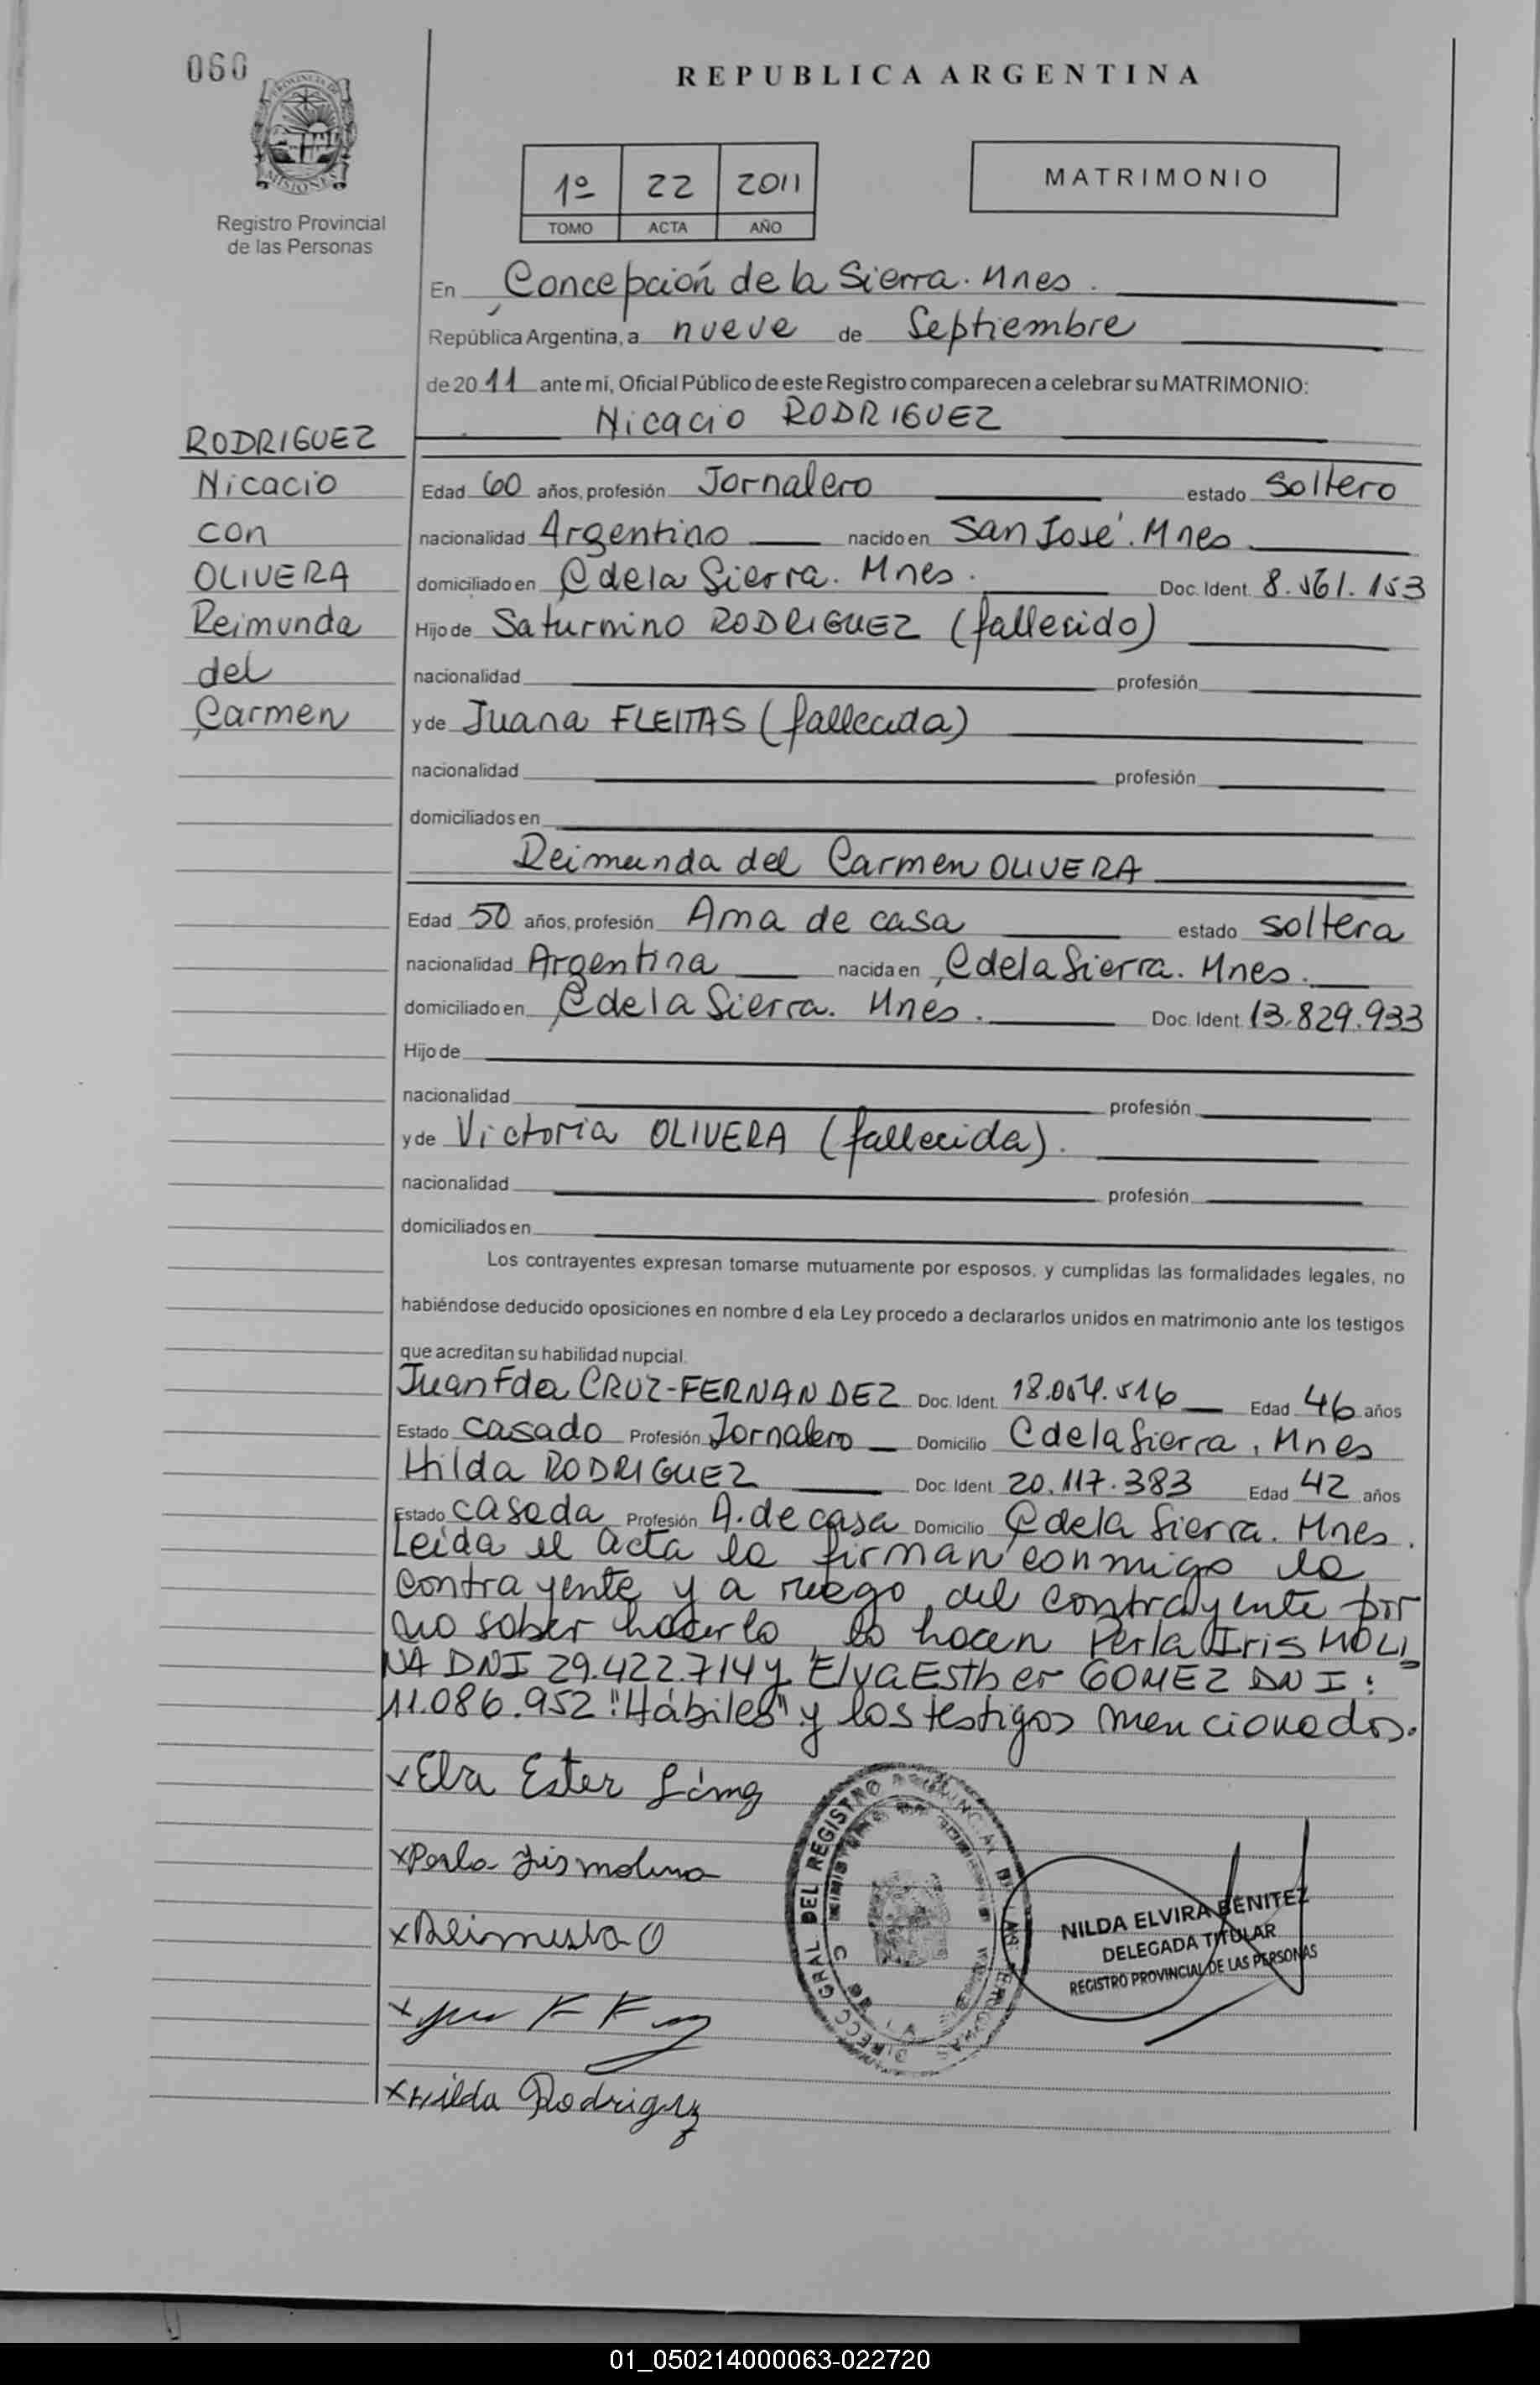 060
REPUBLICA ARGENTINA
PROVINCIA DE
MISIONES
Registro Provincial
de las Personas
1º 22 2011
TOMO ACTA AÑO
MATRIMONIO
En Concepción de la Sierra. Mnes.
República Argentina, a nueve de Septiembre
de 2011 ante mí, Oficial Público de este Registro comparecen a celebrar su MATRIMONIO:
Nicacio RODRIGUEZ
RODRIGUEZ
Nicacio
con
OLIVERA
Reimunda
del
Carmen
Edad 60 años, profesión Jornalero estado Soltero
nacionalidad Argentino nacido en San José. Mnes
domiciliado en C de la Sierra. Mnes. Doc. Ident. 8.561.153
Hijo de Saturnino RODRIGUEZ (fallecido)
nacionalidad profesión
y de Juana FLEITAS (fallecida)
nacionalidad profesión
domiciliados en
Reimunda del Carmen OLIVERA
Edad 50 años, profesión Ama de casa estado soltera
nacionalidad Argentina nacida en C de la Sierra. Mnes.
domiciliado en C de la Sierra. Mnes. Doc. Ident. 13.829.933
Hijo de
nacionalidad profesión
y de Victoria OLIVERA (fallecida).
nacionalidad profesión
domiciliados en
Los contrayentes expresan tomarse mutuamente por esposos, y cumplidas las formalidades legales, no
habiéndose deducido oposiciones en nombre d ela Ley procedo a declararlos unidos en matrimonio ante los testigos
que acreditan su habilidad nupcial.
Juan Fda CRUZ-FERNANDEZ Doc. Ident. 18.054.516 Edad 46 años
Estado casado Profesión Jornalero Domicilio C de la Sierra, Mnes
Hilda RODRIGUEZ Doc. Ident. 20.117.383 Edad 42 años
Estado casada Profesión A. de casa Domicilio C de la Sierra. Mnes.
Leída el acta la firman conmigo la
contrayente y a ruego del contrayente por
no saber hacerlo, lo hacen Perla Iris MOLI
NA DNI 29.422.714 y Elva Esther GOMEZ DNI:
11.086.952 "Hábiles" y los testigos mencionados.
x Elva Ester
x Perla Iris molina
x
x
x Hilda Rodriguez
DIRECC GRAL DEL REGISTRO PROVINCIAL DE LAS PERSONAS
NILDA ELVIRA BENITEZ
DELEGADA TITULAR
REGISTRO PROVINCIAL DE LAS PERSONAS
01_050214000063-022720